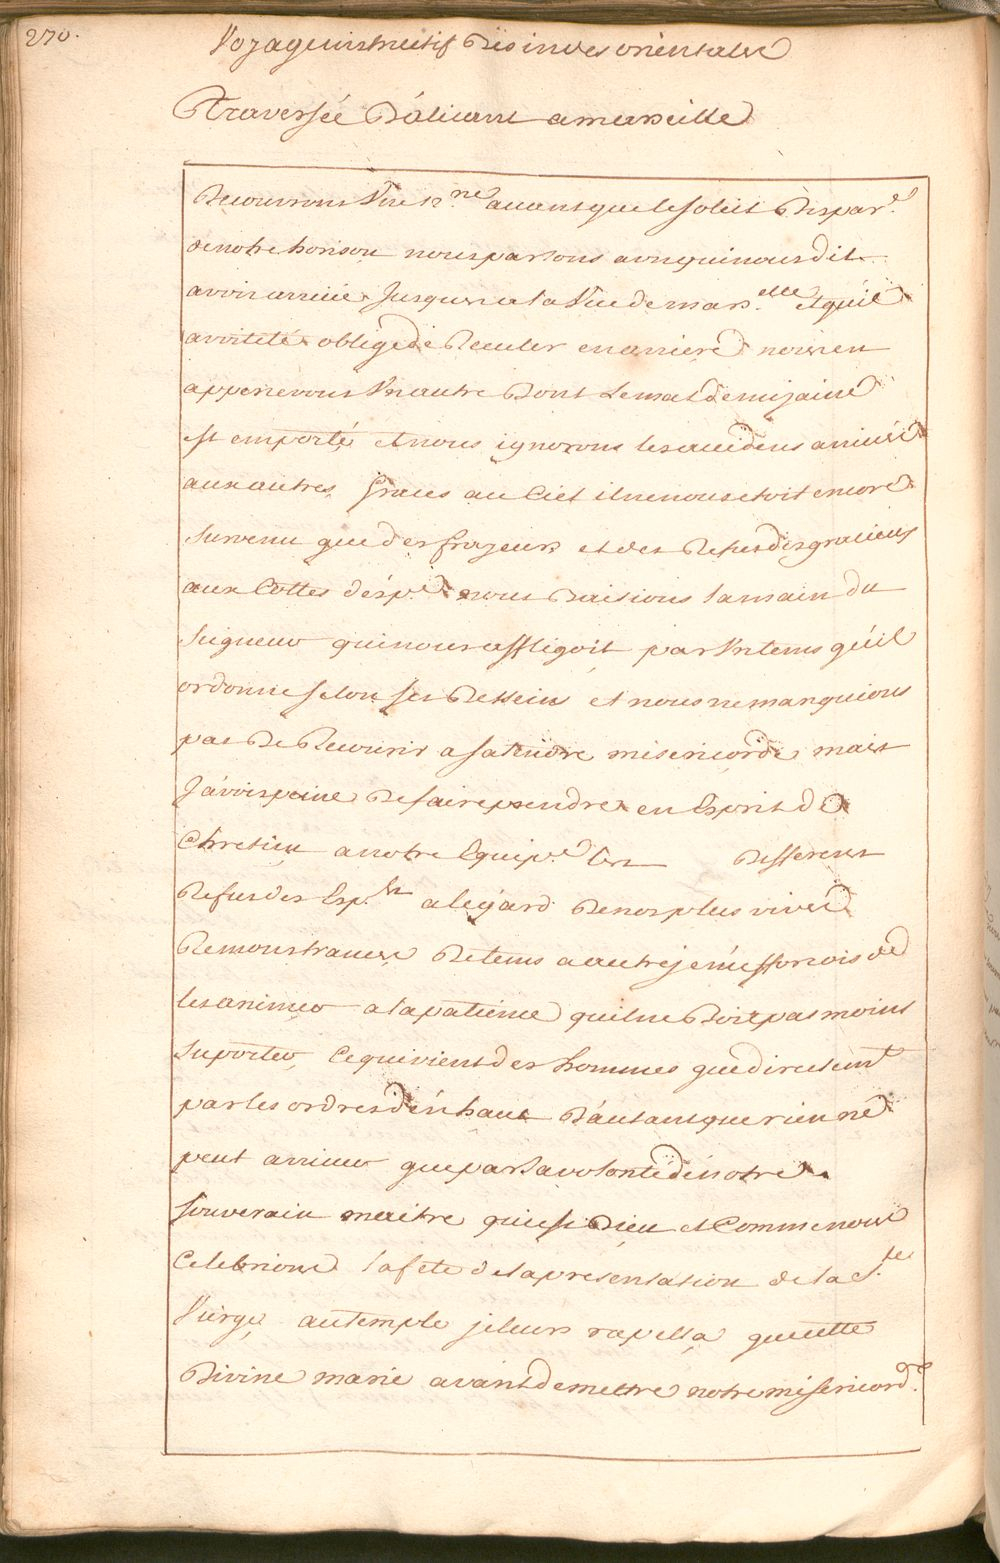 270.
Voyage instructif Des indes orientales
Traversée D'alicant a marseille
Decouvrons Une 12.ne avant que le soleil Dispar.t
de notre horison nous parlons a un qui nous dit
avoir arrivé Jusques a la Vüe de mars.elle et qu'il
avoit eté obligé de Reculer en arriere nous en
appercevons Un autre Dont le mat de mizaine
est emporté et nous ignorons les accidens arrivés
aux autres, Graces au Ciel il ne nous etoit encore
survenu que des frayeurs et des Refus disgracieux
aux Cottes d'esp.e nous Baisions la main du
Seigneur qui nous affligoit par Un tems qu'il
ordonne selon ses Desseins et nous ne manquions
pas De Recourir a sa tendre misericorde mais
J'avois peine De faire prendre en Esprit de
Chretien a notre Equip.e les Differens
Refus des Esp.ls a l'égard De nos plus vives
Remonstrances De tems a autre je m'efforcois de
les animer a la patience qu'il ne Doit pas moins
suporter, Ce qui vient des hommes que directem.t
par les ordres d'en haut D'autant que rien ne
peut arriver que par la volonté de notre
souverain maitre qui est Dieu et Comme nous
Celebrions la fete de la presentation de la S.te
Vierge au temple je leurs rapella que cette
Divine marie avant de mettre notre misericord.e